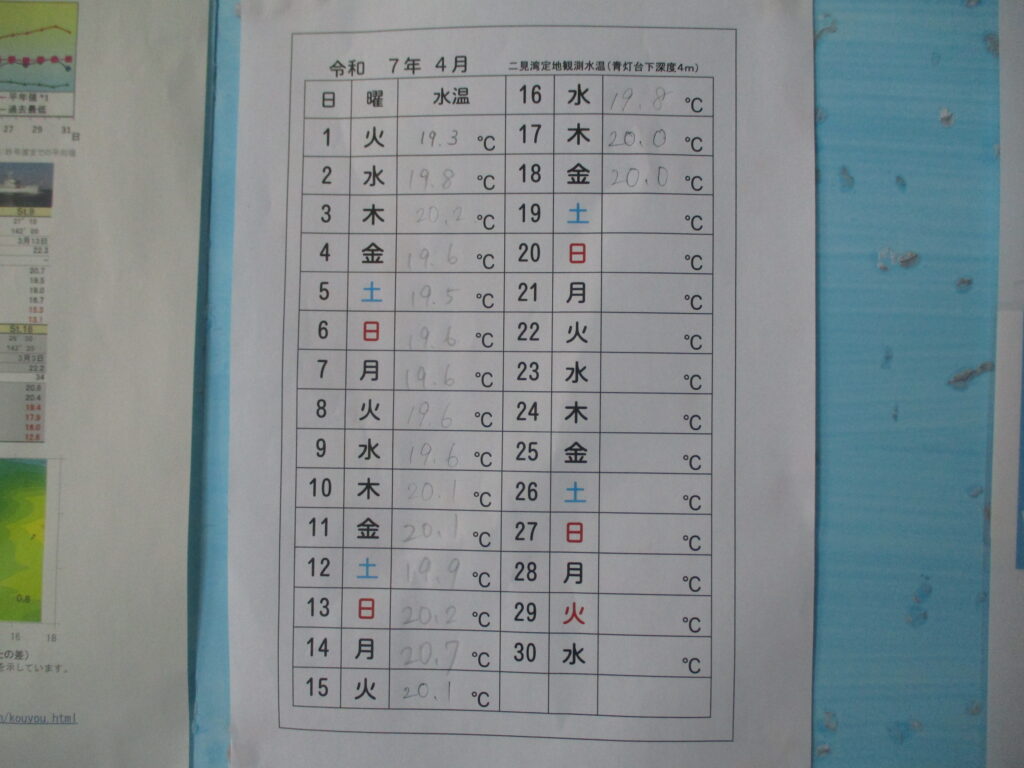 令和 7年 4月 二見湾定地観測水温(青灯台下深度4m)
日 曜 水温
1 火 19.3 ℃
2 水 19.8 ℃
3 木 20.2 ℃
4 金 19.6 ℃
5 土 19.5 ℃
6 日 19.6 ℃
7 月 19.6 ℃
8 火 19.6 ℃
9 水 19.6 ℃
10 木 20.1 ℃
11 金 20.1 ℃
12 土 19.9 ℃
13 日 20.2 ℃
14 月 20.7 ℃
15 火 20.1 ℃
16 水 19.8 ℃
17 木 20.0 ℃
18 金 20.0 ℃
19 土 ℃
20 日 ℃
21 月 ℃
22 火 ℃
23 水 ℃
24 木 ℃
25 金 ℃
26 土 ℃
27 日 ℃
28 月 ℃
29 火 ℃
30 水 ℃
平年値 *1
過去最低
27 29 31
日
St.9
3月13日
22.3
20.7
19.5
18.0
16.7
15.3
13.1
St.16
3月3日
22.2
34
20.6
20.4
19.4
17.9
16.0
12.6
0.8
16 18
の差)
を示しています。
/kouyou.html